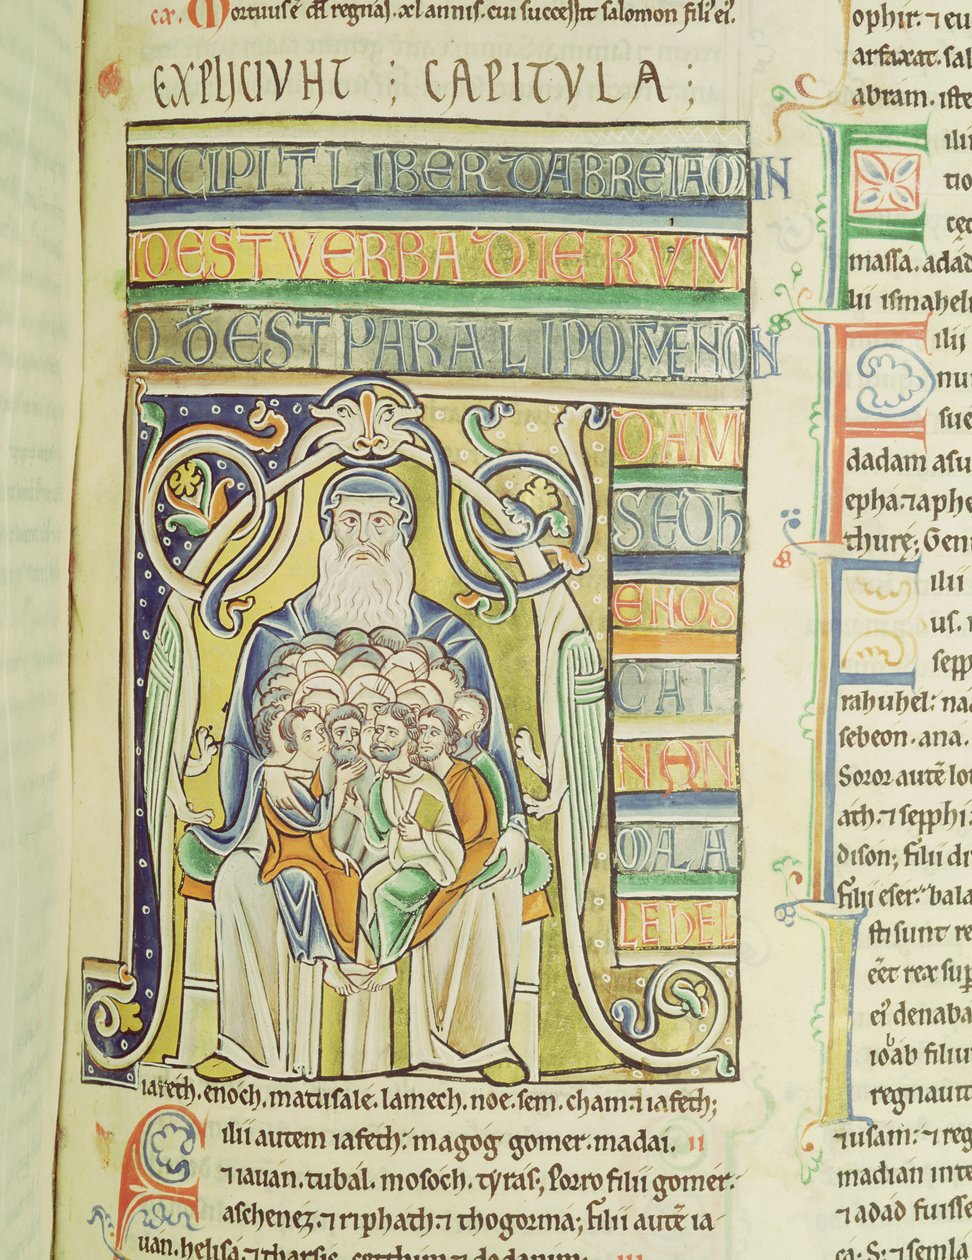 cx. Mortuus ē dd regnaś. xl annis. cui successit salomon fili' ei'.
EXPLICIVNT ; CAPITVLA ;
INCIPIT LIBER DABREIAMIN
IDEST VERBA DIERVM
QD EST PARALIPOMENON
ADAM
SETH
ENOS
CAI
NAN
MALA
LEHEL
iareth. enoch. matusale. lamech. noe. sem. cham. ⁊ iafeth;
Filii autem iafeth: magog gomer. madai. II
⁊ iauan. tubal. mosoch. tyras; Porro filii gomer:
aschenez. ⁊ riphath ⁊ thogorma; filii autē ia
uan. helisa ⁊ tharsis. cetthim ⁊ dodanim. III
ophir: ⁊ eu
arfaxat. sal
abram. iste
Filii
tio
massa. adad
lii ismaheli
Filii
nu
sue
dadam asu
epha. ⁊ aphe
thure; Gen
Filii
us.
sepp
rahuhel: na
sebeon. ana.
Soror autē lot
ath. ⁊ sepphi.
dison; filii di
Filii eser: bala
Isti sunt re
eēt rex sup
ei' denaba
iobab filiu
regnauit
⁊ usam: ⁊ reg
madian inte
⁊ adad fuisse